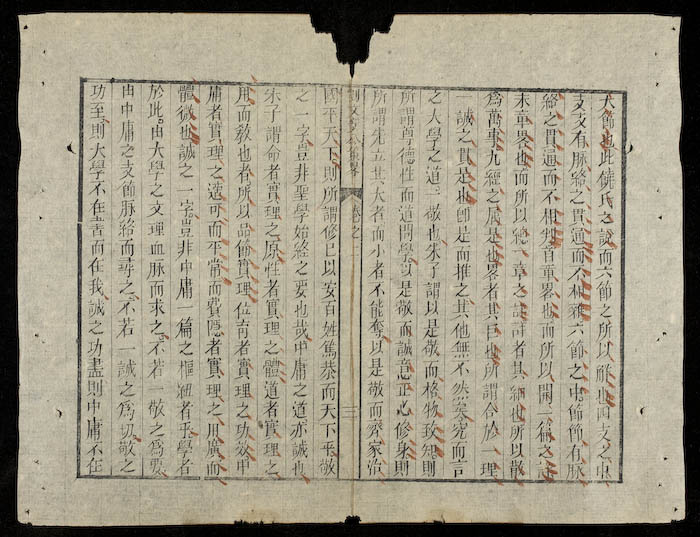 大節也此饒氏之說而六節之所以離也四支之中
支支有脉絡之貫通而不相雜六節之中節節有脉
絡之貫通而不相判首章畧也而所以開一篇之詳
末章畧也而所以總一章之詳詳者其細也所以散
為萬事九經之屬是也畧者其巨也所謂合於一理
一誠之貫是也即是而推之其他無不然矣究而言
之大學之道一敬也朱子謂以是敬而格物致知則
所謂尊德性而道問學以是敬而誠意正心修身則
所謂先立其大者而小者不能奪以是敬而齊家治
文公集畧 卷之一 三
國平天下則所謂修已以安百姓篤恭而天下平敬
之一字豈非聖學始終之要也哉中庸之道亦誠也
朱子謂命者實理之原性者實理之體道者實理之
用而教也者所以品節實理位育者實理之功效中
庸者實理之適可而平常而費隱者實理之用廣而
體微也誠之一字豈非中庸一篇之樞紐者乎學者
於此由大學之文理血脉而求之不若一敬之為要
由中庸之支節脉絡而尋之不若一誠之為切敬之
功至則大學不在書而在我誠之功盡則中庸不在